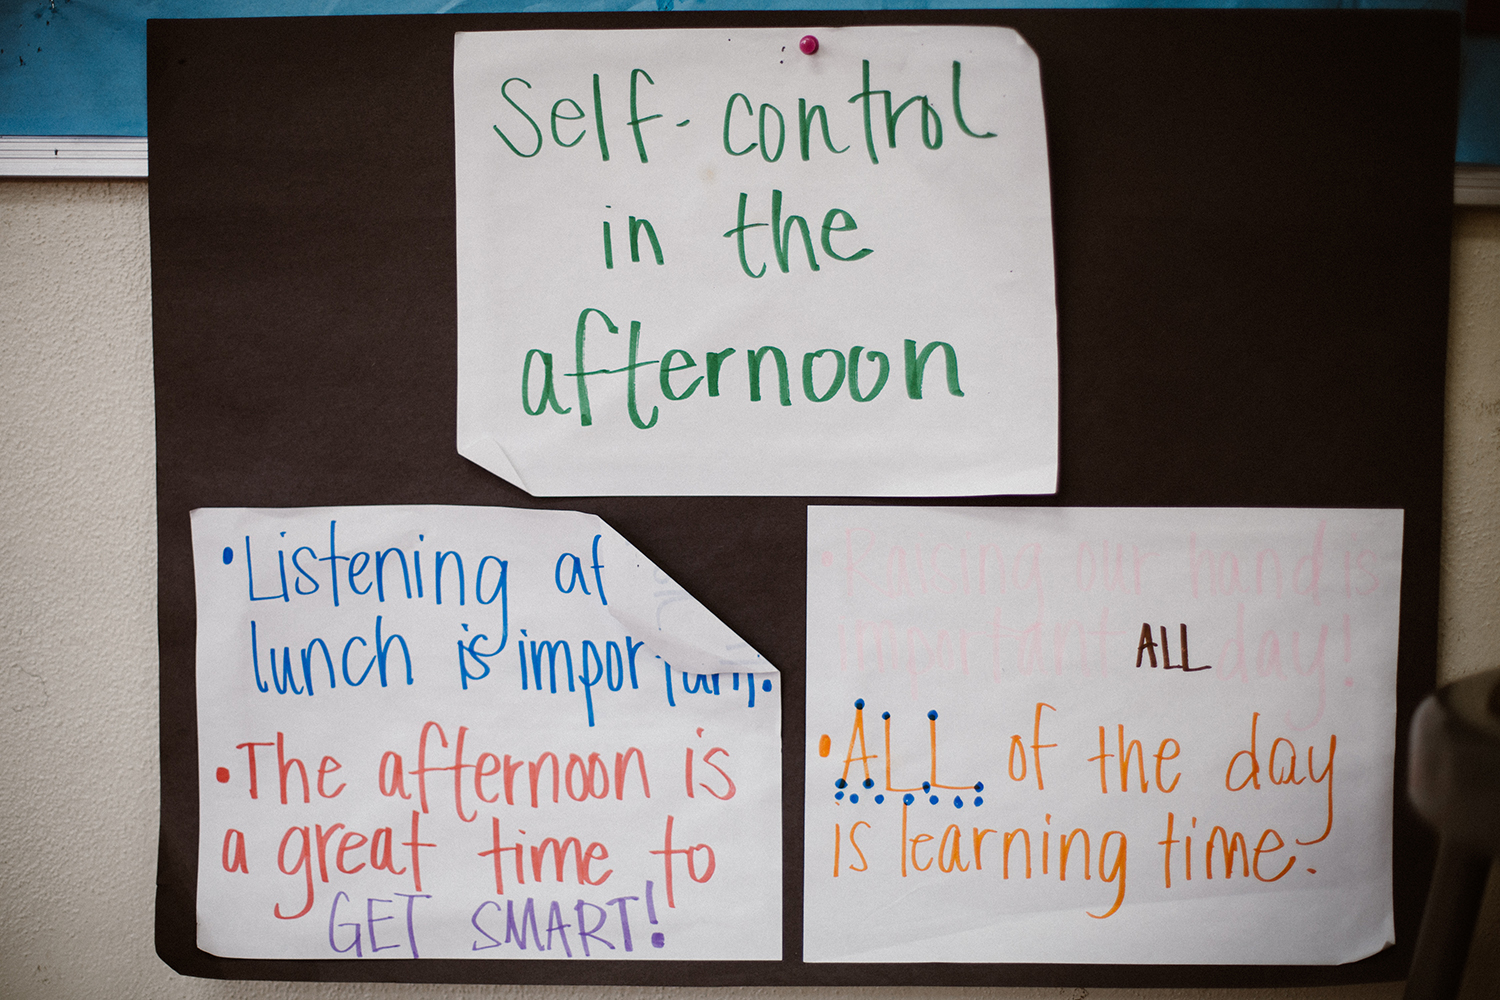 Self-control
in the
afternoon
• Listening at
lunch is important.
• The afternoon is
a great time to
GET SMART!
• Raising our hand is
important ALL day!
• ALL of the day
is learning time.